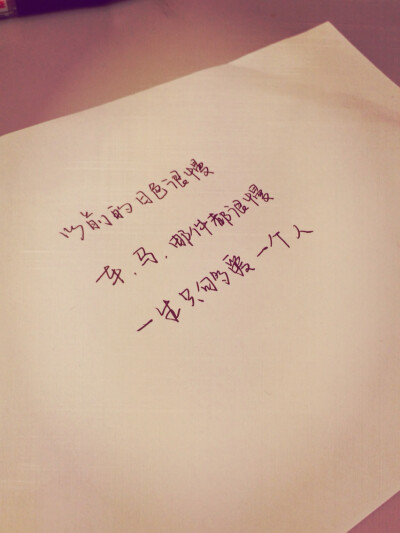 以前的日色很慢
车、马、邮件都很慢
一生只够爱一个人